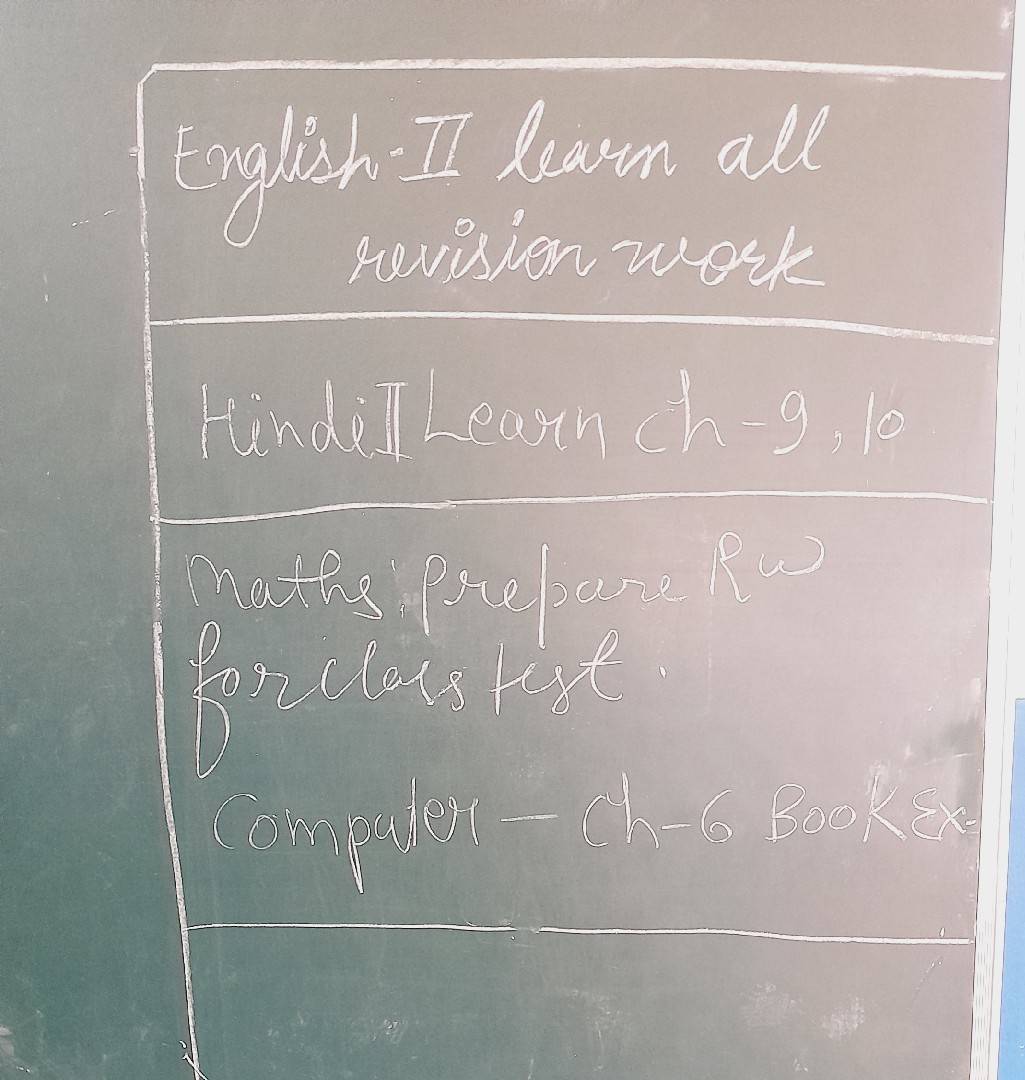 English-II learn all
revision work
Hindi II Learn ch-9, 10
Maths: Prepare RW
for class test.
Computer — Ch-6 Book Ex-